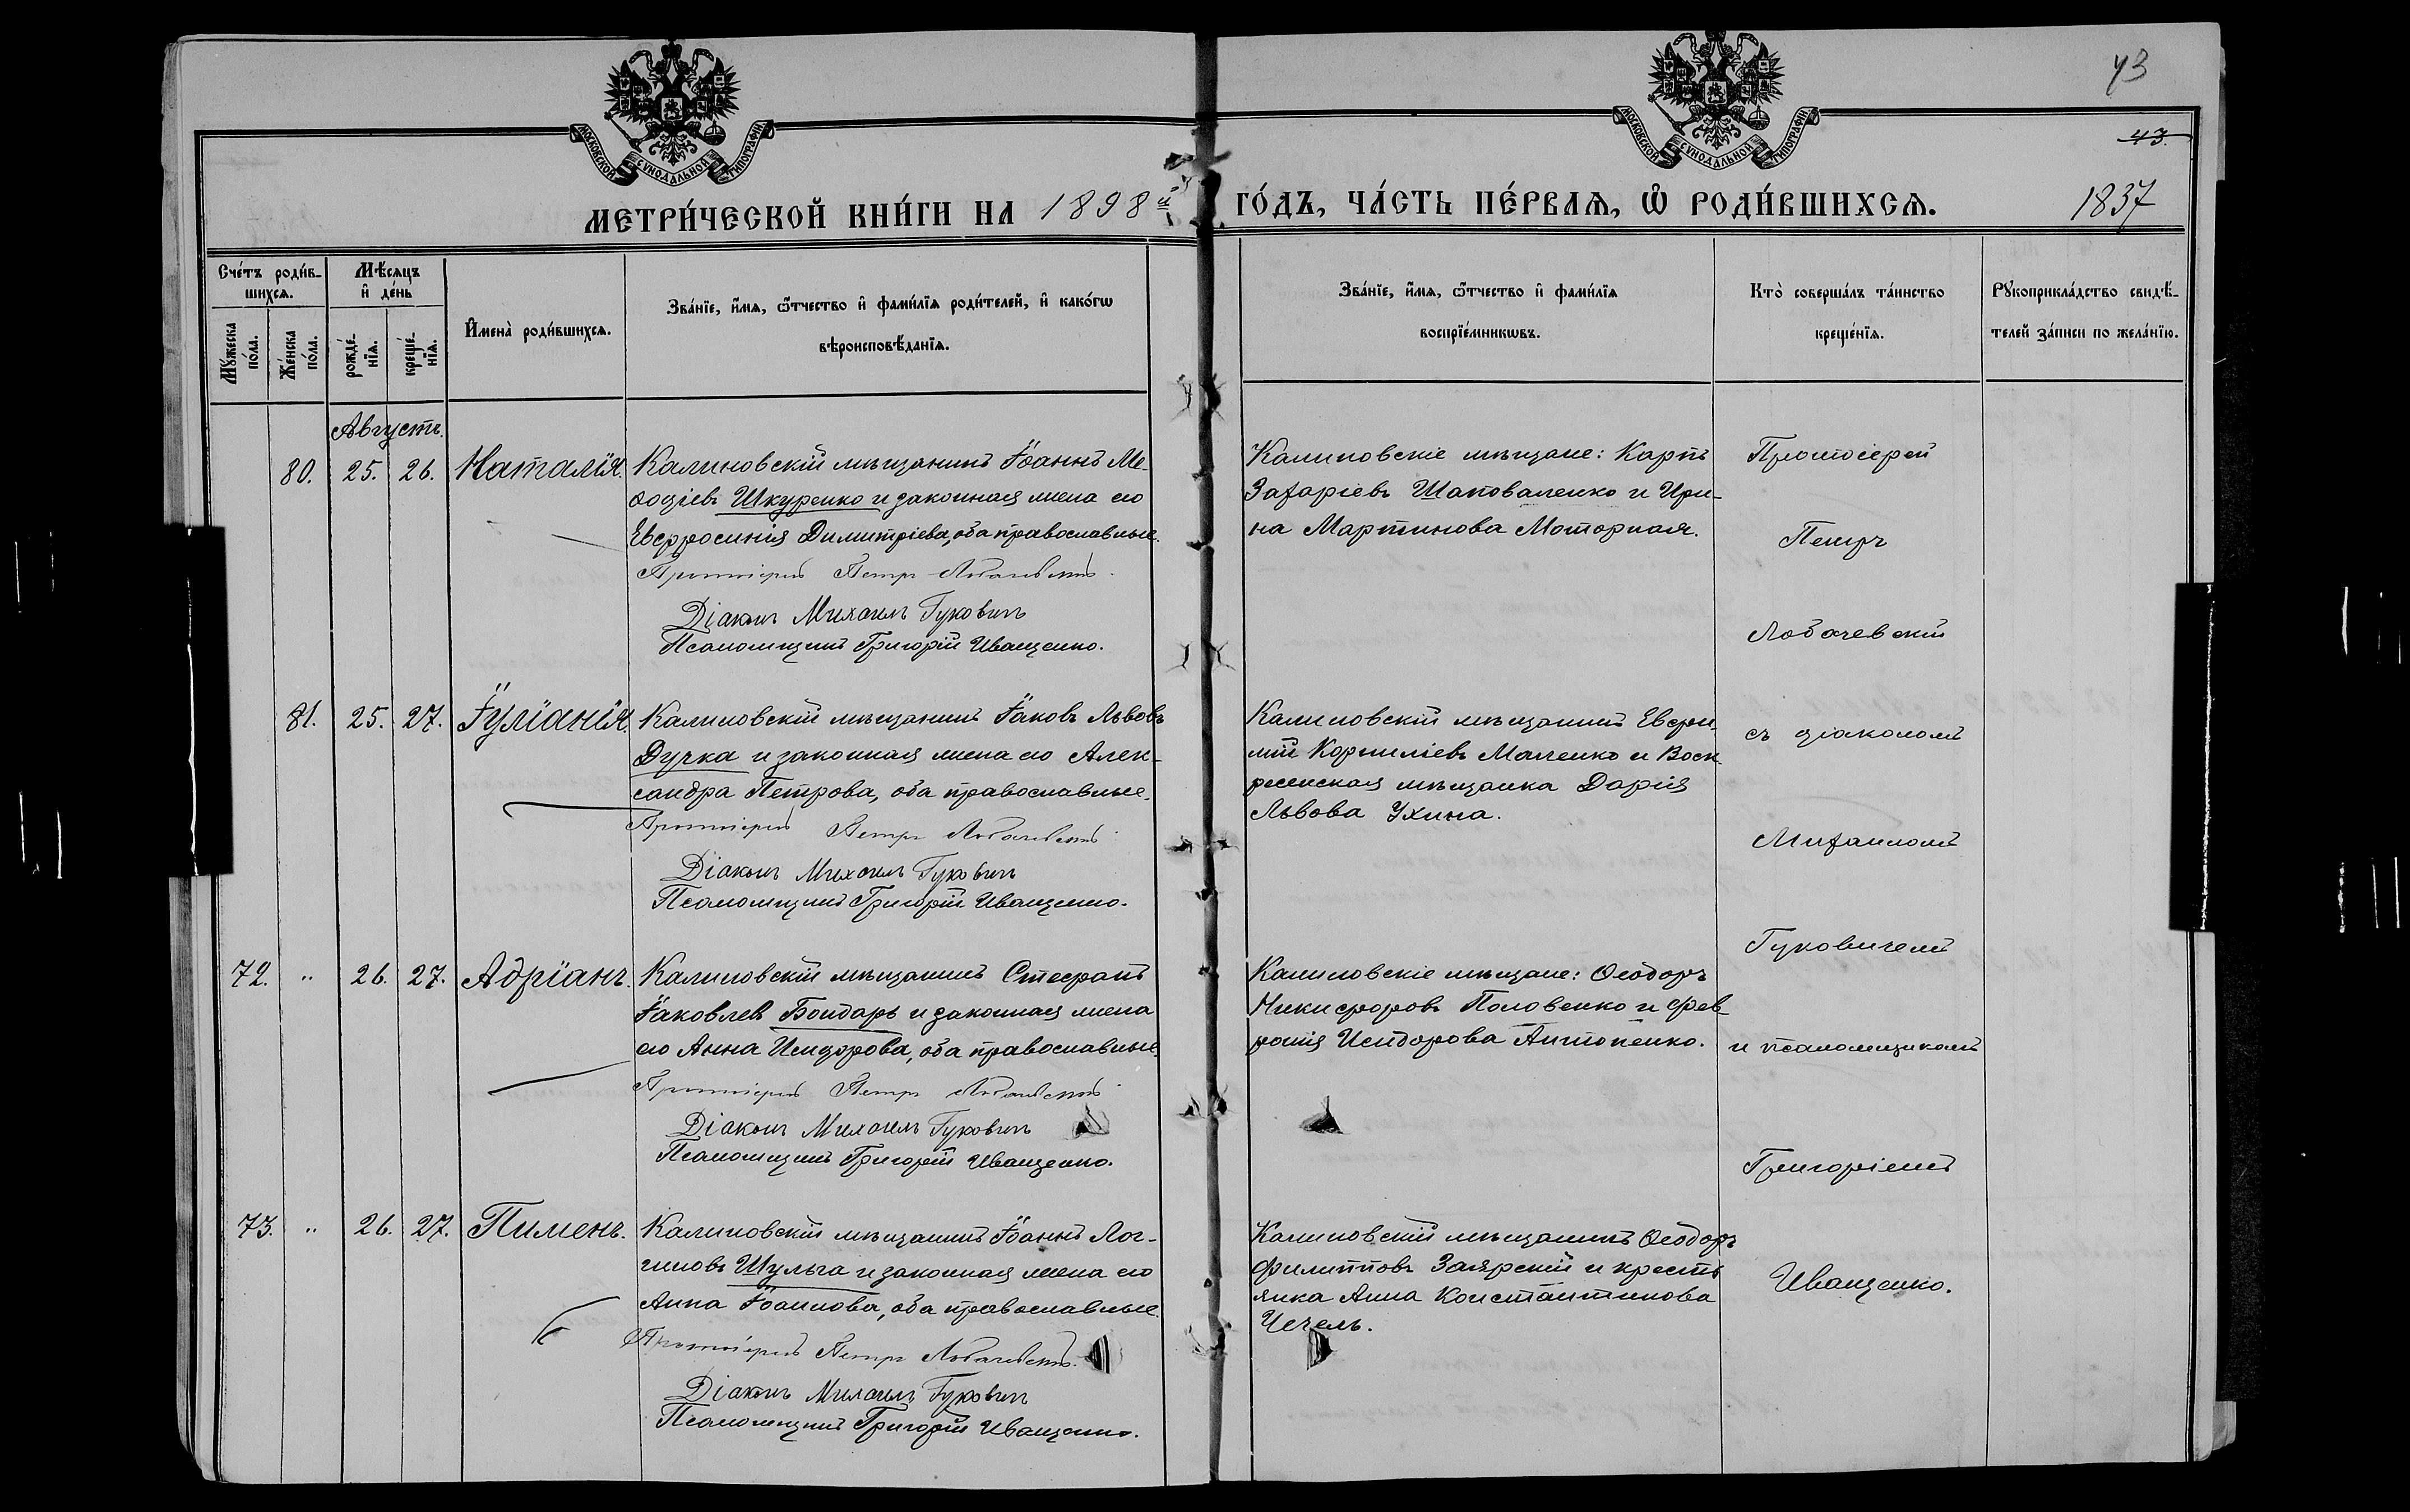 МОСКОВСКОЙ СѴНОДАЛЬНОЙ ТИПОГРАФІИ.
МОСКОВСКОЙ СѴНОДАЛЬНОЙ ТИПОГРАФІИ.
43
43.
МЕТРИ́ЧЕСКОЙ КНИ́ГИ НА 1898й ГО́ДЪ, ЧА́СТЬ ПЕ́РВАѦ, Ѡ҆ РОДИ́ВШИХСѦ.
1837
Сче́тъ роди́в-
шихсѧ.
Мѣ́сѧцъ
и҆ де́нь
Мꙋ́жеска по́ла.
Же́нска по́ла.
рожде́-
нїѧ.
креще́-
нїѧ.
И҆мена̀ роди́вшихсѧ.
Зва́нїе, и҆́мѧ, ѻ҆́тчество и҆ фами́лїѧ роди́телей, и҆ како́гѡ
вѣроисповѣ́данїѧ.
Зва́нїе, и҆́мѧ, ѻ҆́тчество и҆ фами́лїѧ
воспрїе́мникѡвъ.
Кто̀ соверша́лъ та́инство
креще́нїѧ.
Рꙋкоприкла́дство свидѣ́-
телей за́писи по жела́нїю.
Августъ.
80. 25. 26. Наталія. Калиновскій мѣщанинъ Іоаннъ Ме-
ѳодіевъ Шкуренко и законная жена его
Евфросинія Димитріева, оба православные.
Протоіерей Петръ Лобачевскій.
Діаконъ Михаилъ Гуковичъ
Псаломщикъ Григорій Иващенко.
Калиновскіе мѣщане: Карпъ
Захаріевъ Шаповаленко и Ири-
на Мартинова Моторная.
81. 25. 27. Іуліанія. Калиновскій мѣщанинъ Іаковъ Львовъ
Дучка и законная жена его Алек-
сандра Петрова, оба православные.
Протоіерей Петръ Лобачевскій.
Діаконъ Михаилъ Гуковичъ
Псаломщикъ Григорій Иващенко.
Калиновскій мѣщанинъ Евфи-
мій Корниліевъ Малченко и Воск-
ресенская мѣщанка Дарія
Львова Ухина.
72. " 26. 27. Адріанъ. Калиновскій мѣщанинъ Стефанъ
Іаковлевъ Бондарь и законная жена
его Анна Исидорова, оба православные.
Протоіерей Петръ Лобачевскій.
Діаконъ Михаилъ Гуковичъ
Псаломщикъ Григорій Иващенко.
Калиновскіе мѣщане: Ѳеодоръ
Никифоровъ Половенко и Фев-
ронія Исидорова Антоненко.
73. " 26. 27. Пименъ. Калиновскій мѣщанинъ Іоаннъ Лог-
гиновъ Шульга и законная жена его
Анна Іоаннова, оба православные.
Протоіерей Петръ Лобачевскій.
Діаконъ Михаилъ Гуковичъ
Псаломщикъ Григорій Иващенко.
Калиновскій мѣщанинъ Ѳеодоръ
Филипповъ Заярскій и кресть
янка Анна Константинова
Чечель.
Протоіерей
Петръ
Лобачевскій
съ діакономъ
Михаиломъ
Гуковичемъ
и псаломщикомъ
Григоріемъ
Иващенко.